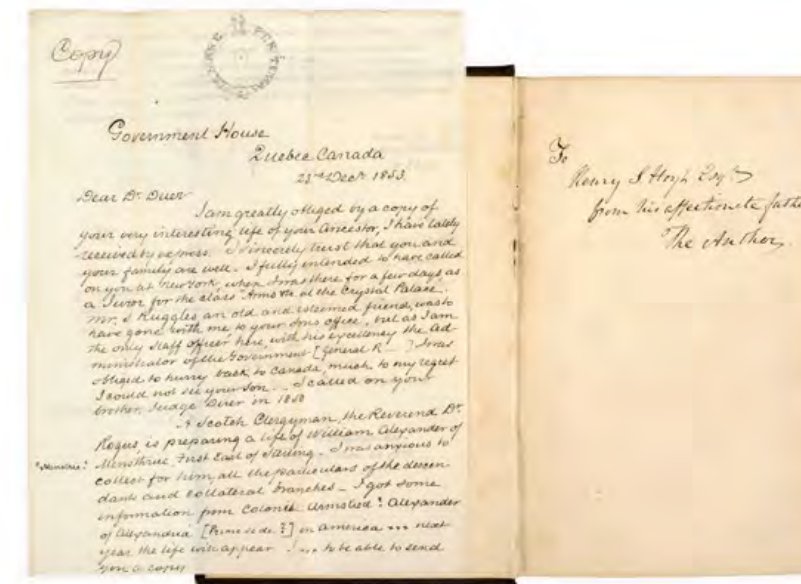 Copy
Government House
Quebec Canada
23rd Decr 1853.
Dear Dr. Duer
I am greatly obliged by a copy of
your very interesting life of your Ancestor, I have lately
received by express. I sincerely trust that you and
your family are well. I fully intended to have called
on you at New York, when I was there for a few days, as
a Juror for the class "Arms &c at the Crystal Palace.
Mr. S. Ruggles an old and esteemed friend, was to
have gone with me to your Sons office, but as I am
the only Staff Officer here, with his excellency the Ad-
ministrator of the Government [General R— ] I was
obliged to hurry back to Canada, much to my regret
I could not see your Son. — I called on your
brother, Judge Duer in 1850
A Scotch Clergyman, the Reverend Dr.
Rogers, is preparing a life of William Alexander of
Menstrie, First Earl of Sterling. I was anxious to
collect for him, all the particulars of the descen-
dants and collateral branches — I got some
information from Colonel Armstied? Alexander
of Alexandria [ ] in America ... next
year the life will appear ! ... to be able to send
you a copy
To
Henry S Hoyt Esqre
from his affectionate father
The Author